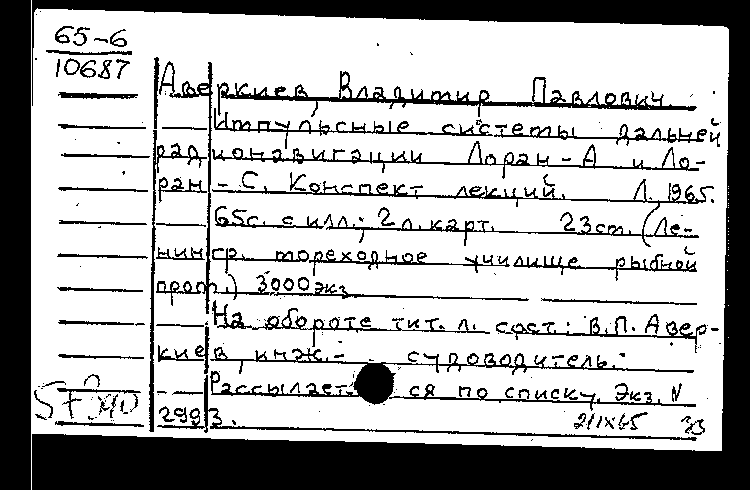 65-6
10687
Аверкиев, Владимир Павлович.
Импульсные системы дальней
радионавигации Лоран-А и Ло-
ран-С. Конспект лекций. Л., 1965.
65с. с илл.; 2 л. карт. 23см. (Ле-
нингр. мореходное училище рыбной
пром.) 3000экз
На обороте тит. л. сост.: В.П. Авер-
киев, инж.- судоводитель.
Рассылается по списку. Экз. N
2993.
2/IX65 33